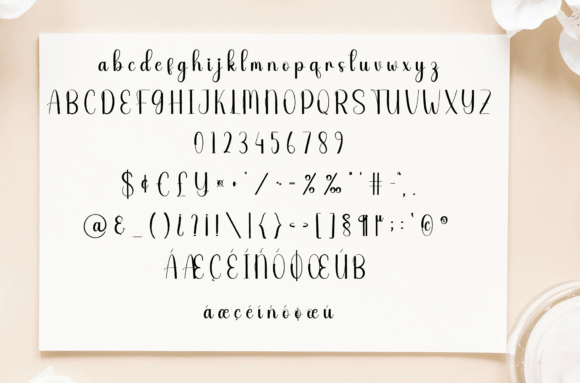 abcdefghijklmnopqrstuvwxyz
ABCDEFGHIJKLMNOPQRSTUVWXYZ
0123456789
$¢€£¥*•·/~-%‰"'#-^,.
@&_()¿?¡!\|{}<>[]§¶µ;:'©®
ÁÆÇÉÍÑÓØŒÚß
áæçéíñóøœú